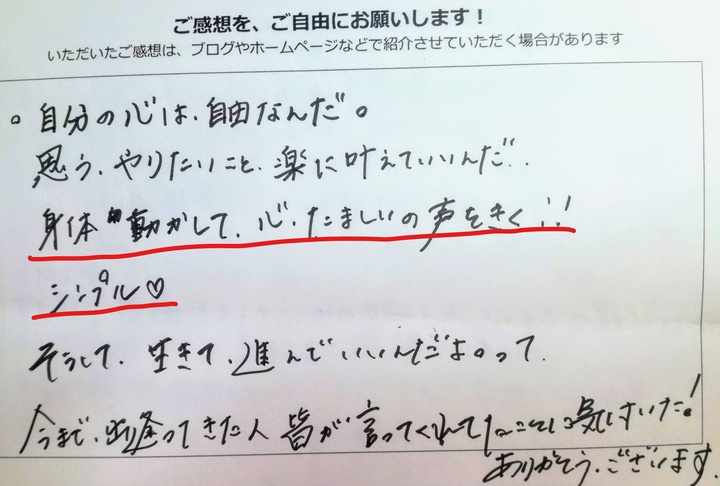 ご感想を、ご自由にお願いします！
いただいたご感想は、ブログやホームページなどで紹介させていただく場合があります
。自分の心は、自由なんだ。
思う、やりたいこと、楽に叶えていいんだ!!
身体 動かして、心、たましいの声をきく!!
シンプル♡
そうして、生きて、進んでいいんだよ。って、
今まで、出逢ってきた人 皆が言ってくれてたことに気付いた!
ありがとう、ございます。